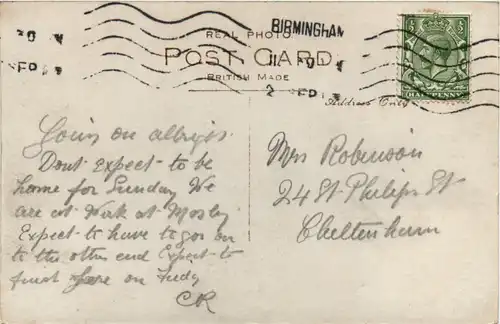 BIRMINGHAM
REAL PHOTO
POST CARD
BRITISH MADE
HALFPENNY
Address Only
Going on allright
Dont Expect to be
home for Sunday We
are at Work at Mosley
Expect to have to go on
to the other end Expect to
finish here on
CR
Mrs Robinson
24 St Philips St
Cheltenham